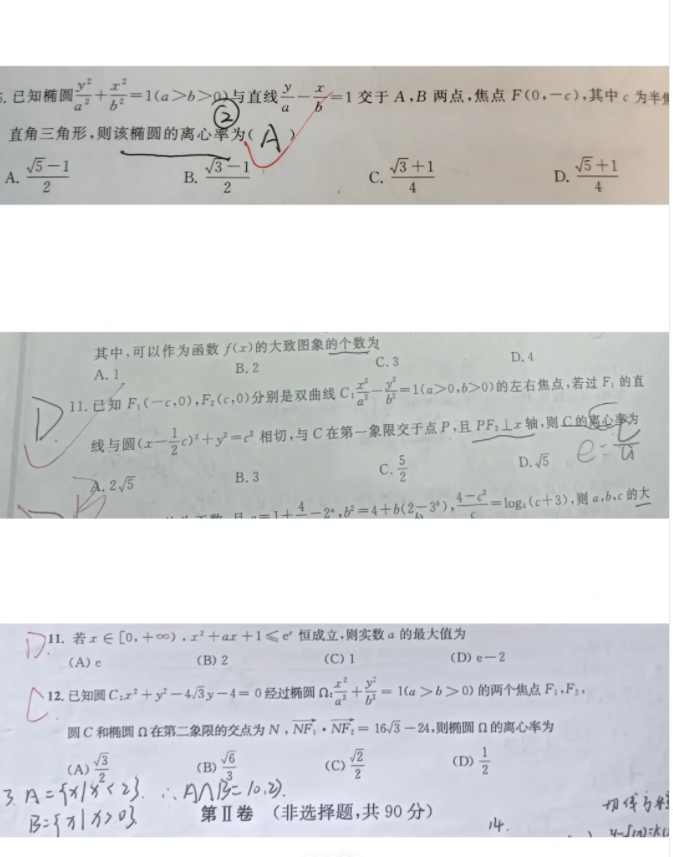 5. 已知椭圆 y²/a² + x²/b² = 1(a>b>0)与直线 y/a − x/b = 1 交于 A,B 两点,焦点 F(0,−c),其中 c 为半焦
②
直角三角形,则该椭圆的离心率为( A )
A. (√5−1)/2 B. (√3−1)/2 C. (√3+1)/4 D. (√5+1)/4
其中,可以作为函数 f(x)的大致图象的个数为
A. 1 B. 2 C. 3 D. 4
D. 11. 已知 F₁(−c,0),F₂(c,0)分别是双曲线 C: x²/a² − y²/b² = 1(a>0,b>0)的左右焦点,若过 F₁ 的直
线与圆(x − 1/2 c)² + y² = c² 相切,与 C 在第一象限交于点 P,且 PF₂⊥x 轴,则 C 的离心率为
e = c/a
A. 2√5 B. 3 C. 5/2 D. √5
=1+4/ −2ᵃ,b²=4+b(2−3ᵇ),(4−c²)/c=log₄(c+3),则 a,b,c 的大
D. 11. 若 x∈[0,+∞),x²+ax+1≤eˣ 恒成立,则实数 a 的最大值为
(A) e (B) 2 (C) 1 (D) e−2
C 12. 已知圆 C:x²+y²−4√3y−4=0 经过椭圆 Ω: x²/a² + y²/b² = 1(a>b>0) 的两个焦点 F₁,F₂,
圆 C 和椭圆 Ω 在第二象限的交点为 N,NF₁·NF₂=16√3−24,则椭圆 Ω 的离心率为
(A) √3/2 (B) √6/3 (C) √2/2 (D) 1/2
3. A={x|x<2}. ∴A∩B=(0,2).
B={x|x>0}
第Ⅱ卷 (非选择题,共 90 分)
14.
切线方程